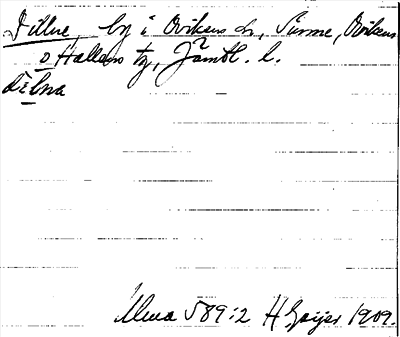 Dillne, by i Ovikens sn, Sunne, Ovikens
o Hallens tg, Jämtl. l.
dɛlna
Ulma 589:2 H Geijer 1909.